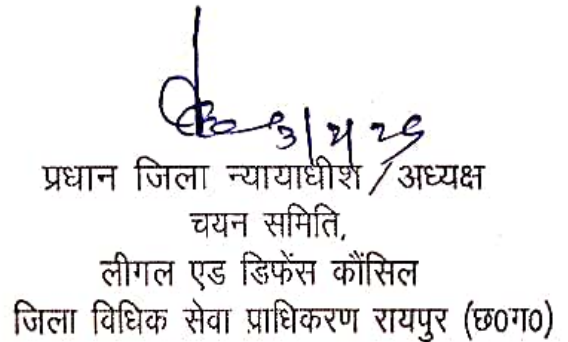 प्रधान जिला न्यायाधीश/अध्यक्ष
चयन समिति,
लीगल एड डिफेंस कौंसिल
जिला विधिक सेवा प्राधिकरण रायपुर (छ०ग०)